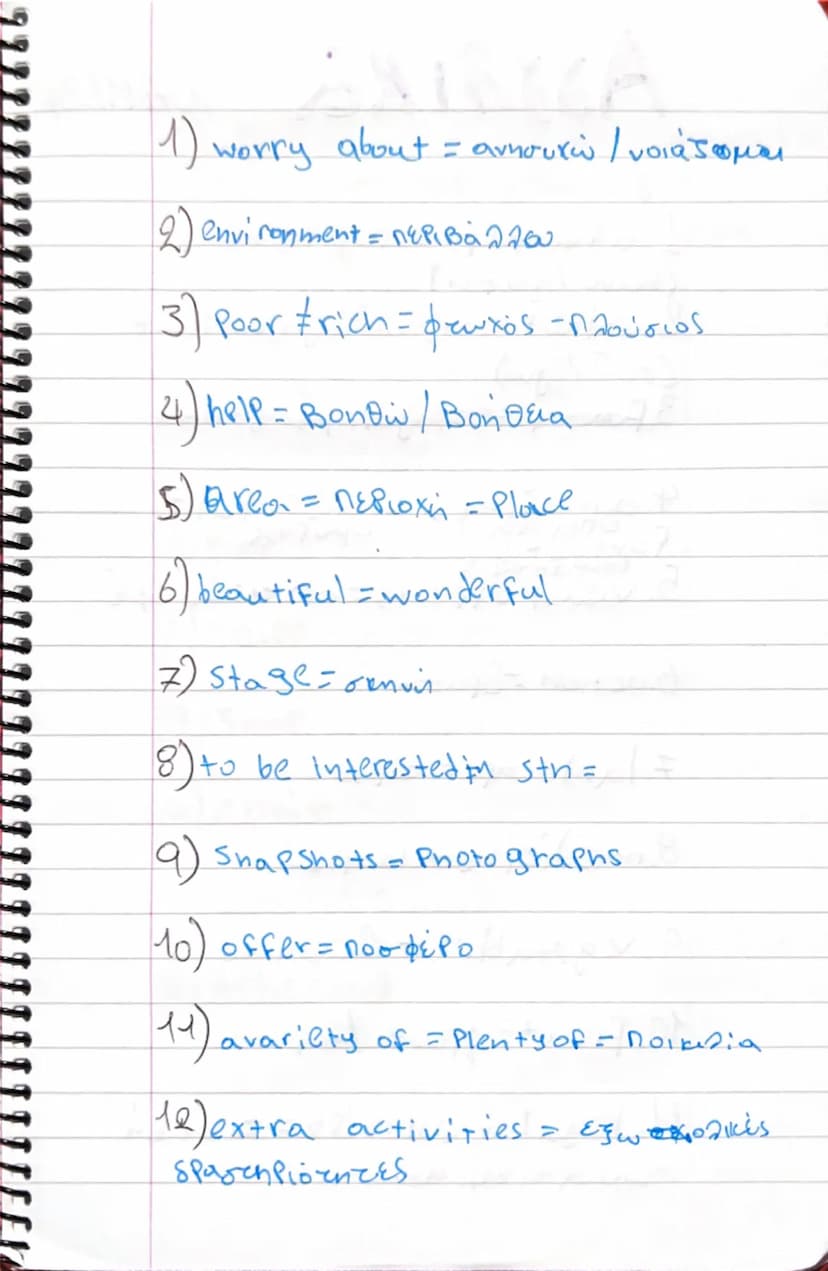 1) worry about = ανησυχώ / νοιάζομαι
2) environment = περιβάλλον
3) poor ≠ rich = φτωχός - πλούσιος
4) help = Βοηθώ / Βοήθεια
5) area = περιοχή = place
6) beautiful = wonderful
7) stage = σκηνή
8) to be interested in sth =
9) snapshots = photographs
10) offer = ποσφέρο
11) avariety of = plenty of = ποικιλία
12) extra activities = εξωσχολικές
δραστηριότητες